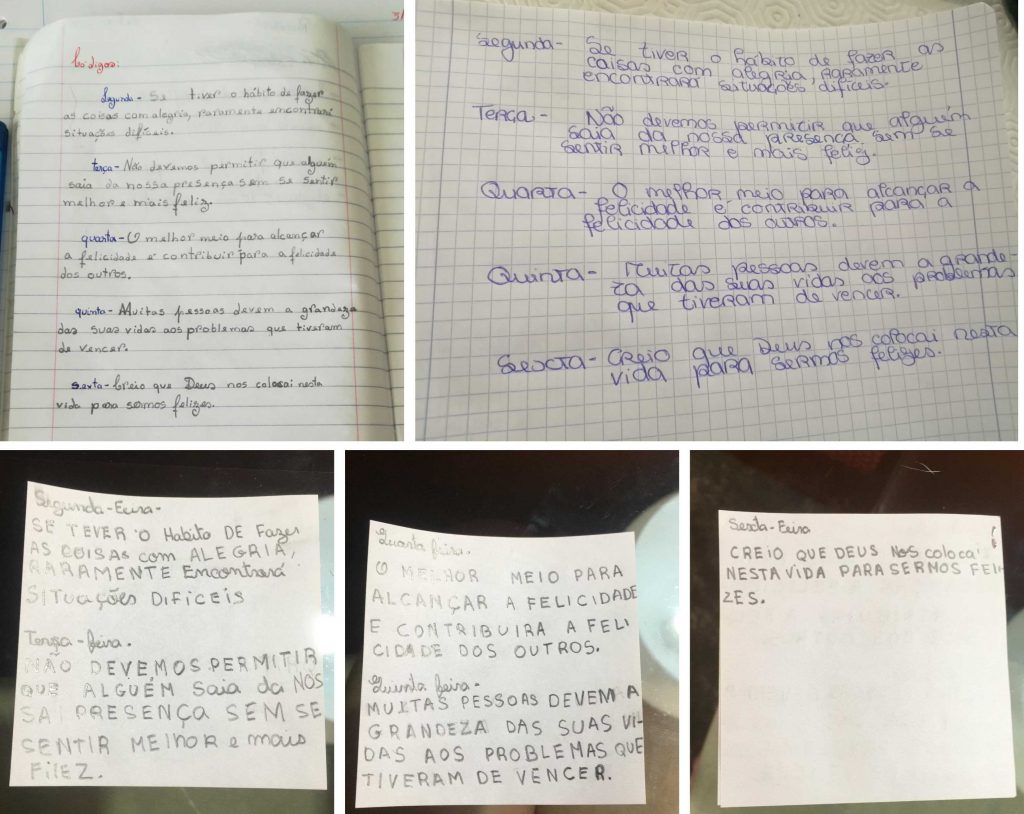 Códigos:
Segunda - Se tiver o hábito de fazer
as coisas com alegria, raramente encontrará
situação difíceis.
terça - Não devemos permitir que alguém
saia da nossa presença sem se sentir
melhor e mais feliz.
quarta - O melhor meio para alcançar
a felicidade é contribuir para a felicidade
dos outros.
quinta - Muitas pessoas devem a grandeza
das suas vidas aos problemas que tiveram
de vencer.
sexta - Creio que Deus nos colocai nesta
vida para sermos felizes.
Segunda - Se tiver o hábito de fazer as
caisas com alegria, raramente
encontrara situações dificeis.
Terça - Não devemos permitir que alguém
saia da nossa presença sem se
sentir melhor e mais feliz.
Quarta - O melhor meio para alcançar a
felicidade é contribuir para a
felicidade dos outros.
Quinta - Muitas pessoas devem a grande-
za das suas vidas aos problemas
que tiveram de vencer.
Sexta - Creio que Deus nos colocai nesta
vida para sermos felizes.
Segunda-Feira-
SE TEVER O Habito DE Fazer
AS COISAS com ALEGRIA,
RARAMENTE Encontrará
SITUAÇÕES DIFICEIS
Terça-feira.
NÃO DEVEMOS PERMITIR
QUE ALGUÉM Saia da NOS
SA PRESENÇA SEM SE
SENTIR MElhOR e mais
FilEZ.
Quarta feira.
O MELHOR MEIO PARA
ALCANÇAR A FELICIDADE
E CONTRIBUIRA A FELI
CIDADE DOS OUTROS.
Quinta feira-
MUITAS PESSOAS DEVEM A
GRANDEZA DAS SUAS VI-
DAS AOS PROBLEMAS QUE
TIVERAM DE VENCER.
Sexta-Feira
CREIO QUE DEUS NOS colocai
NESTA VIDA PARA SERMOS FELI
ZES.